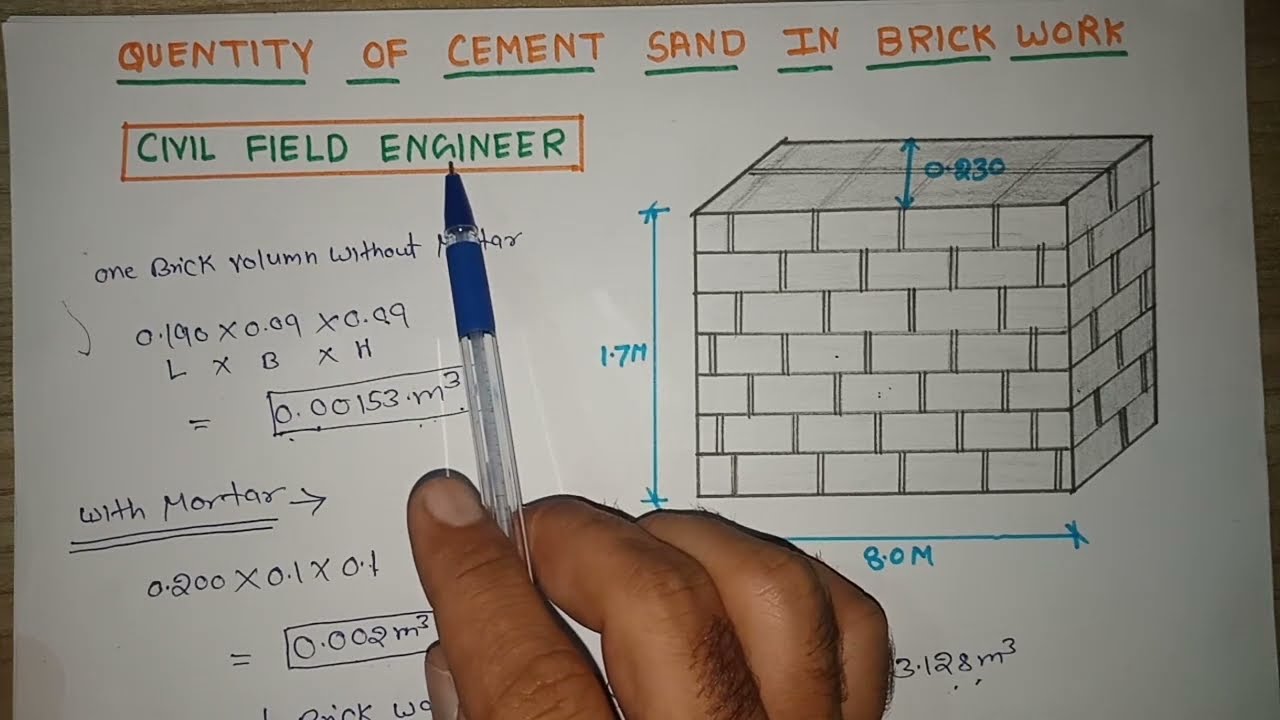 QUENTITY OF CEMENT SAND IN BRICK WORK
CIVIL FIELD ENGINEER
one Brick volumn without
0.190 X 0.09 X 0.09
L X B X H
= 0.00153.m³
With Mortar →
0.200 X 0.1 X 0.1
= 0.002m³
Brick
0.230
1.7M
8.0M
3.128m³